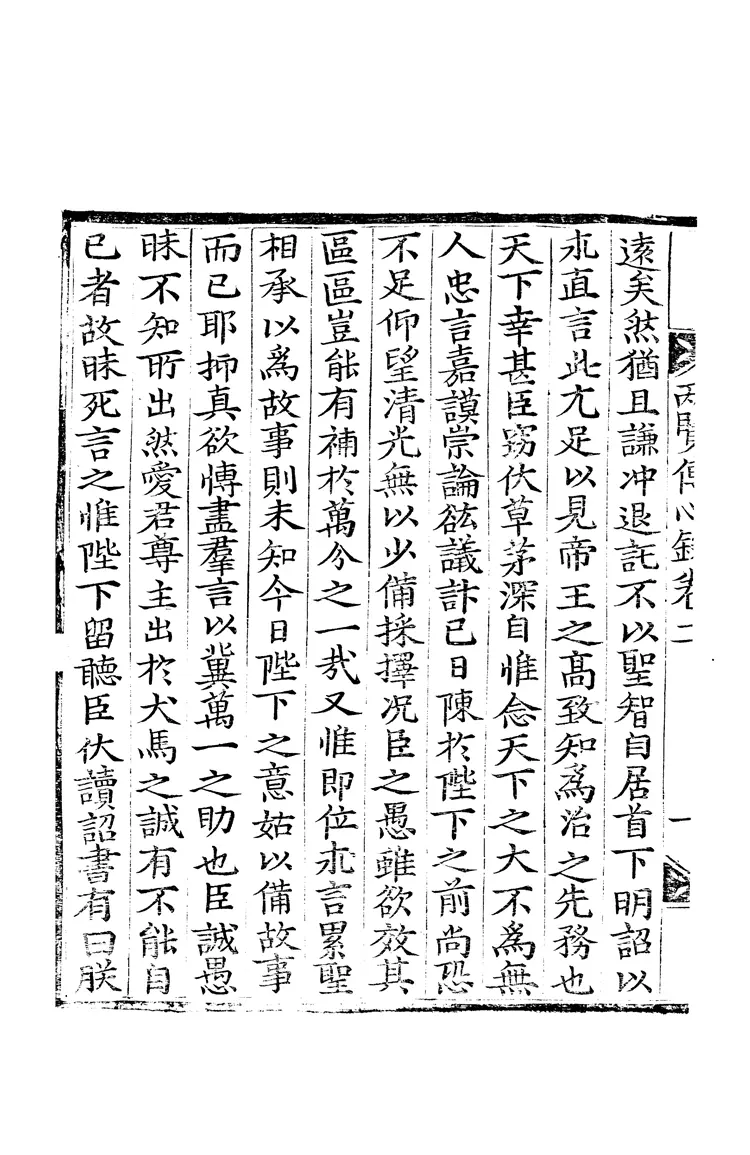 兩賢傳心錄卷二
一
遠矣然猶且謙冲退託不以聖智自居首下明詔以
求直言此尤足以見帝王之高致知爲治之先務也
天下幸甚臣竊伏草茅深自惟念天下之大不爲無
人忠言嘉謨崇論竑議計已日陳於陛下之前尚恐
不足仰望清光無以少備採擇况臣之愚雖欲效其
區區豈能有補於萬分之一㢤又惟即位求言累聖
相承以爲故事則未知今日陛下之意姑以備故事
而已耶抑真欲博盡羣言以兾萬一之助也臣誠愚
昧不知所出然愛君尊主出於犬馬之誠有不能自
已者故昧死言之惟陛下留聽臣伏讀詔書有曰朕